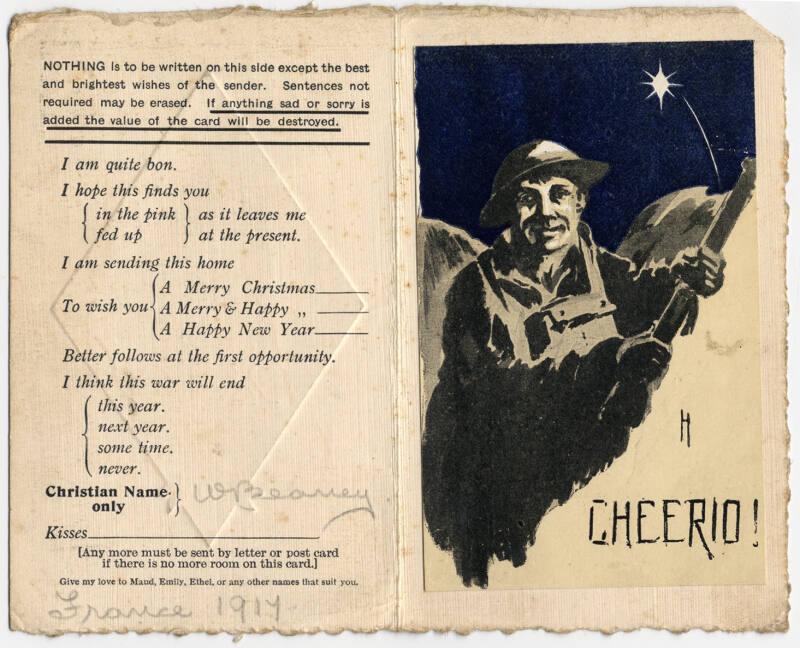 NOTHING is to be written on this side except the best
and brightest wishes of the sender. Sentences not
required may be erased. If anything sad or sorry is
added the value of the card will be destroyed.
I am quite bon.
I hope this finds you
in the pink
fed up
as it leaves me
at the present.
I am sending this home
To wish you
A Merry Christmas
A Merry & Happy „
A Happy New Year
Better follows at the first opportunity.
I think this war will end
this year.
next year.
some time.
never.
Christian Name
only
W Beaney
Kisses
[Any more must be sent by letter or post card
if there is no more room on this card.]
Give my love to Maud, Emily, Ethel, or any other names that suit you.
France 1917
H
CHEERIO!